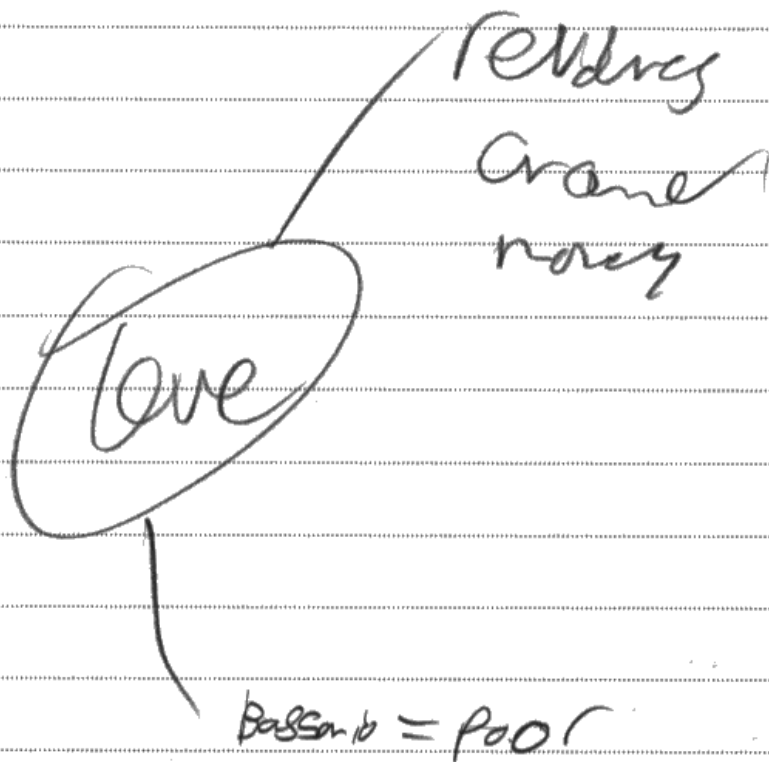 revolves
around
money
love
Bassanio = poor